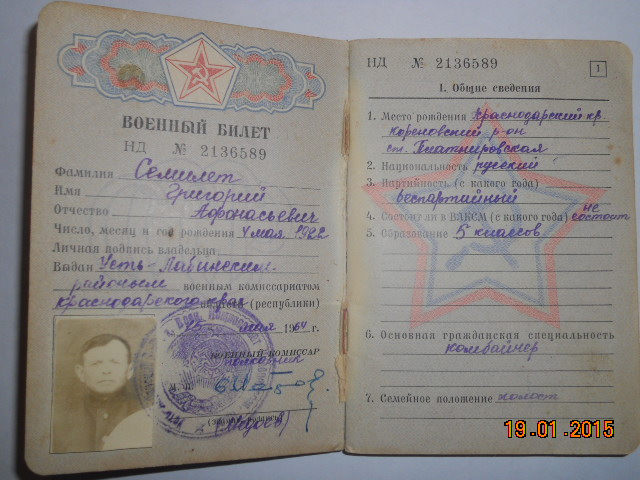 ВОЕННЫЙ БИЛЕТ
НД № 2136589
Фамилия Семилет
Имя Григорий
Отчество Афонасьевич
Число, месяц и год рождения 4 мая 1922
Личная подпись владельца
Выдан Усть-Лабинским
районым военным комиссариатом
краснодарского края области (республики)
15 мая 1964 г.
ВОЕННЫЙ КОМИССАР
полковник
НД № 2136589
1
1. Общие сведения
1. Место рождения Краснодарский кр.
Кореновский р-он
ст. Платнировская
2. Национальность русский
3. Партийность (с какого года)
беспартийный
4. Состоит ли в ВЛКСМ (с какого года) не состоит
5. Образование 5 классов
6. Основная гражданская специальность
комбайнер
7. Семейное положение холост
19.01.2015